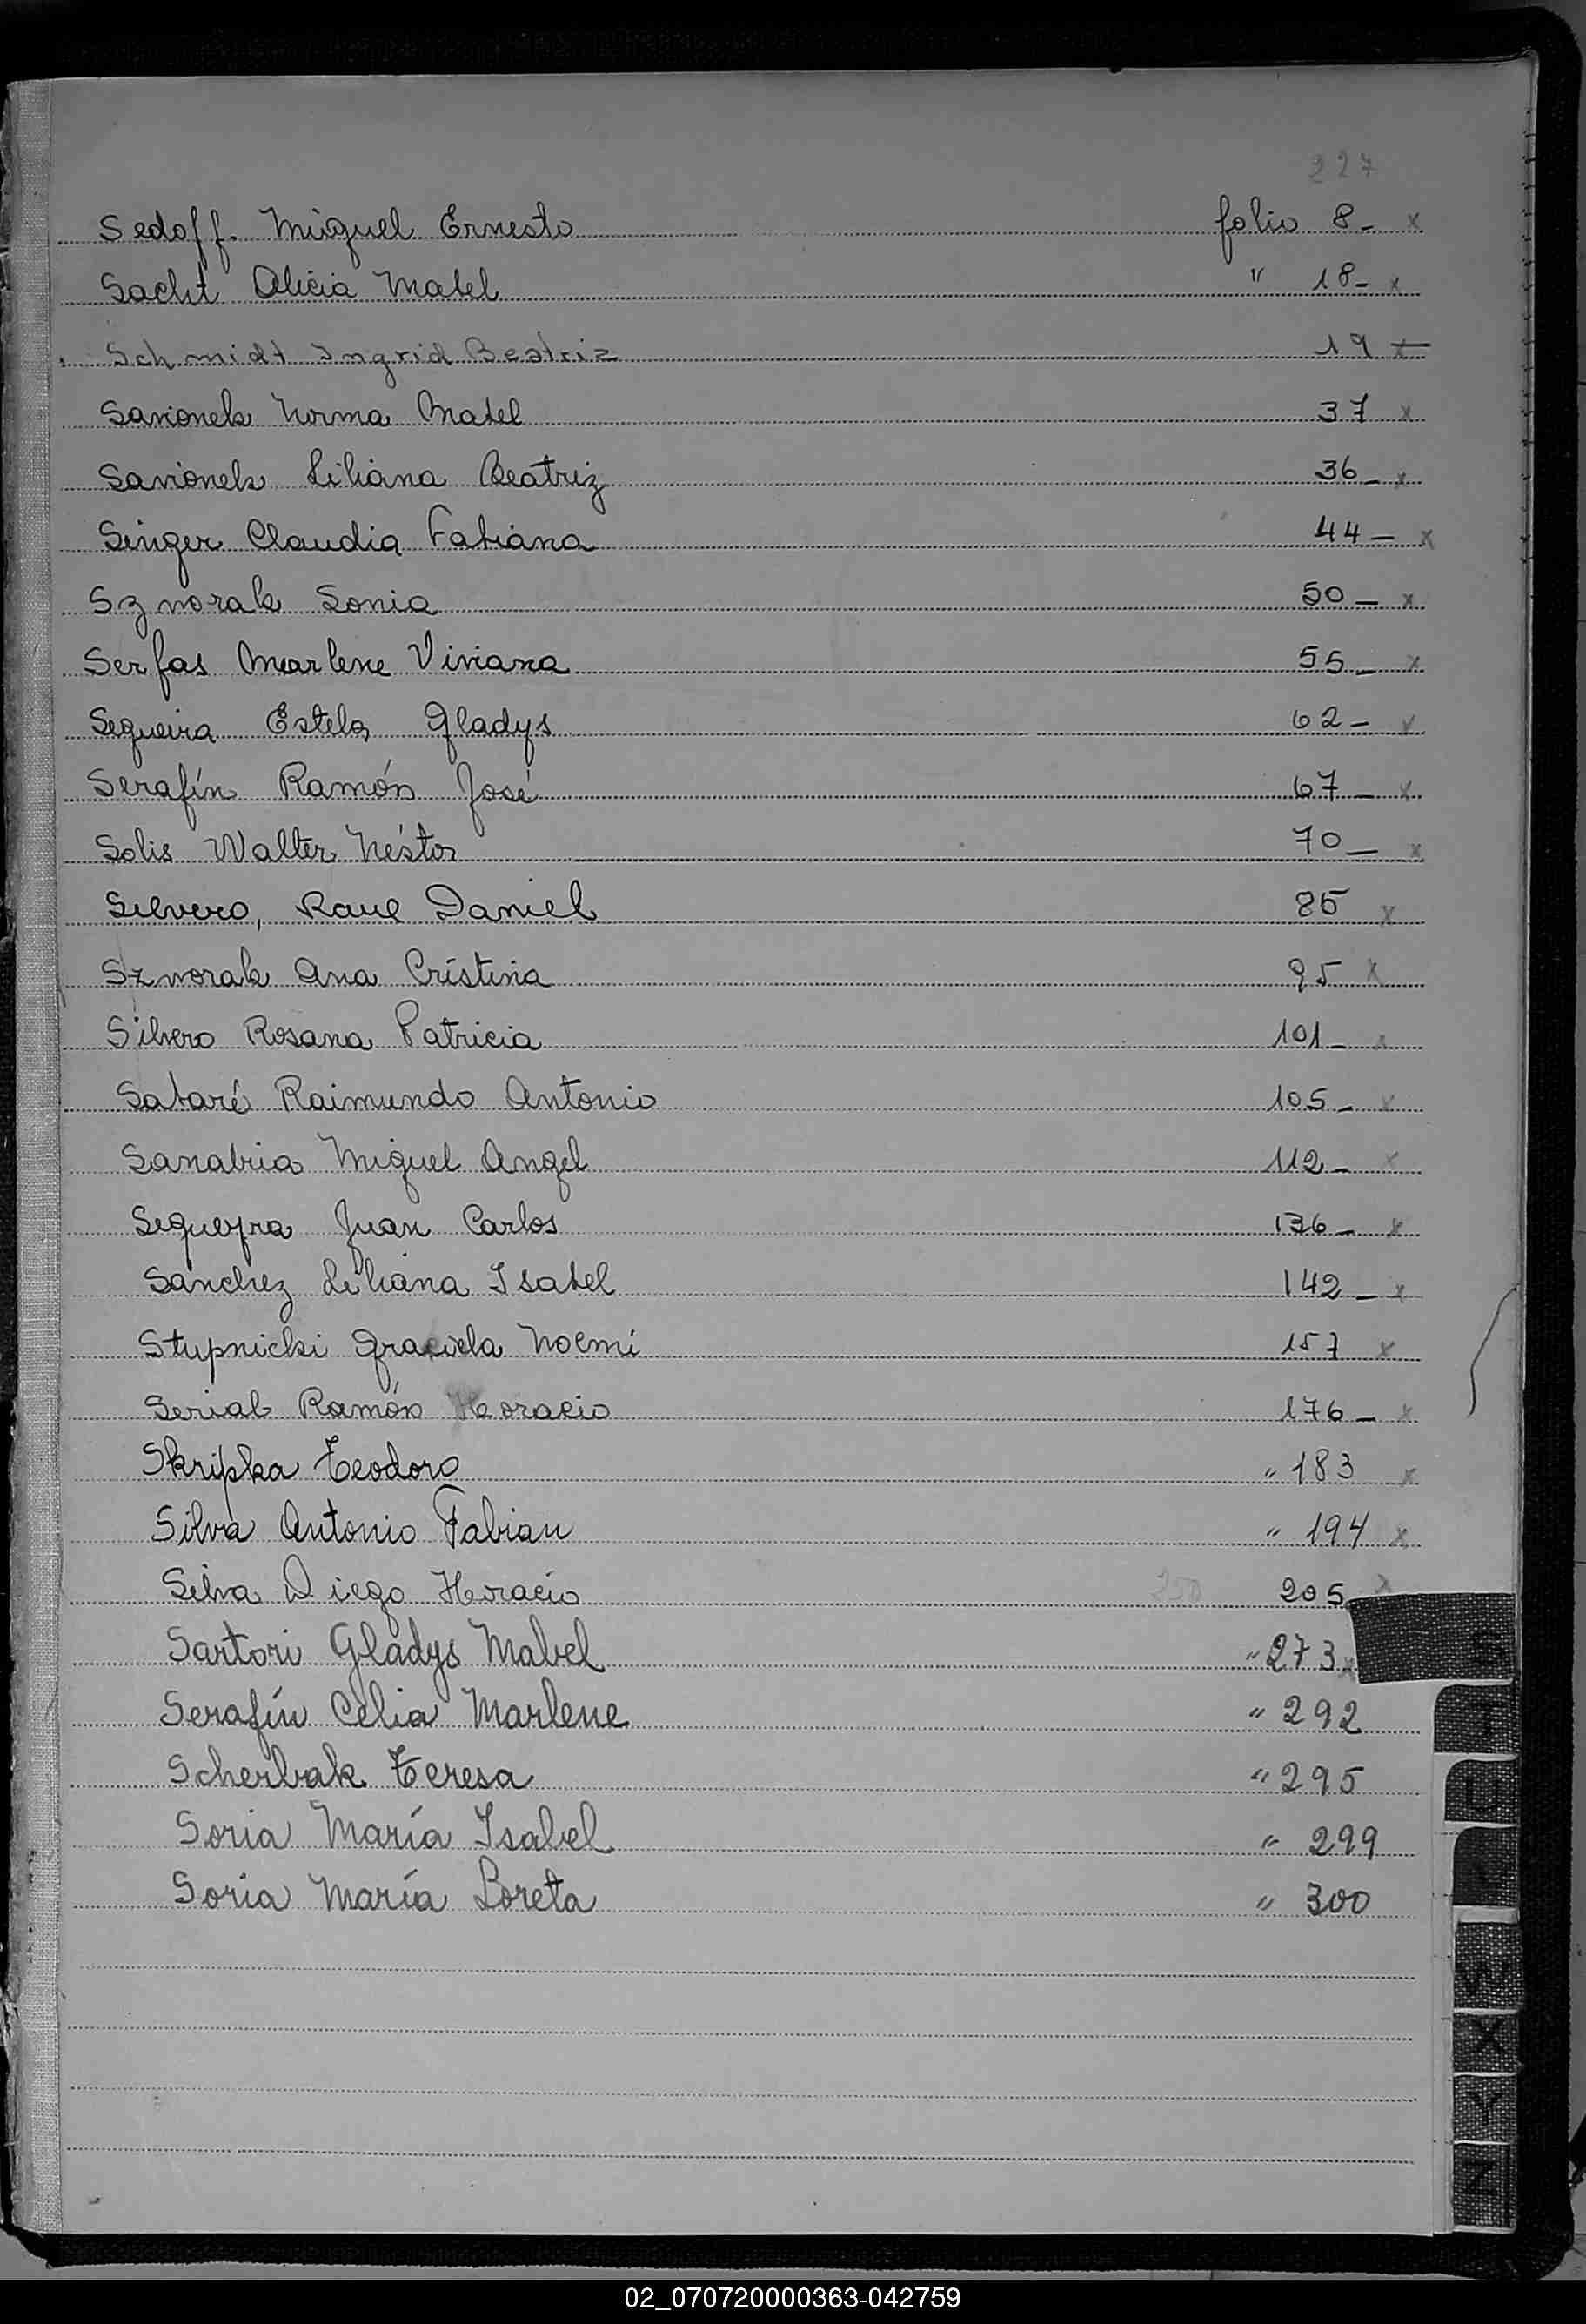 227
Sedoff Miguel Ernesto folio 8 - x
Sacht Alicia Mabel " 18 - x
Schmidt Ingrid Beatriz 19 x
Savionek Norma Mabel 37 x
Savionek Liliana Beatriz 36 - x
Singer Claudia Fabiana 44 - x
Szworak Sonia 50 - x
Serfas Marlene Viviana 55 - x
Sequeira Estela Gladys 62 - x
Serafín Ramón José 67 - x
Solis Walter Néstor 70 - x
Silvero, Raul Daniel 85 x
Szworak Ana Cristina 95 x
Silvero Rosana Patricia 101 - x
Sabaré Raimundo Antonio 105 - x
Sanabria Miguel Angel 112 - x
Sequeyra Juan Carlos 136 - x
Sanchez Liliana Isabel 142 - x
Stupnicki Graciela Noemi 157 x
Serial Ramón Horacio 176 - x
Skripka Teodoro " 183 x
Silva Antonio Fabian " 194 x
Silva Diego Horacio 250 205 x
Sartori Gladys Mabel " 273 x
Serafín Celia Marlene " 292
Scherbak Teresa " 295
Soria María Isabel " 299
Soria María Loreta " 300
S
T
U
W
X
Y
Z
02_070720000363-042759